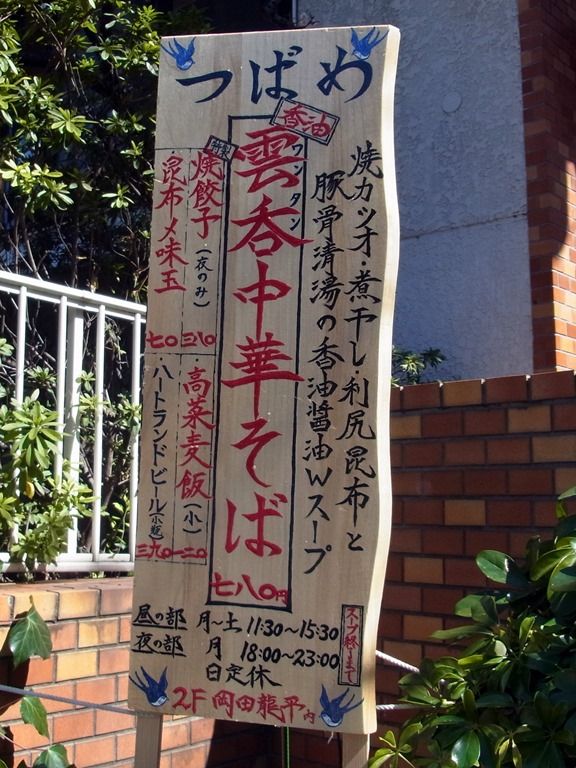 つばめ
焼カツオ・煮干し・利尻昆布と
豚骨清湯の香油醤油Wスープ
香油
雲呑中華そば
ワンタン
七八〇円
特製
焼餃子・(夜のみ)
三八〇
昆布〆味玉
七〇
・高菜麦飯(小)
一二〇
・ハートランドビール(小瓶)
三九〇
昼の部 月~土 11:30~15:30
夜の部 月 18:00~23:00
日定休
スープ終了まで
2F 岡田龍平内